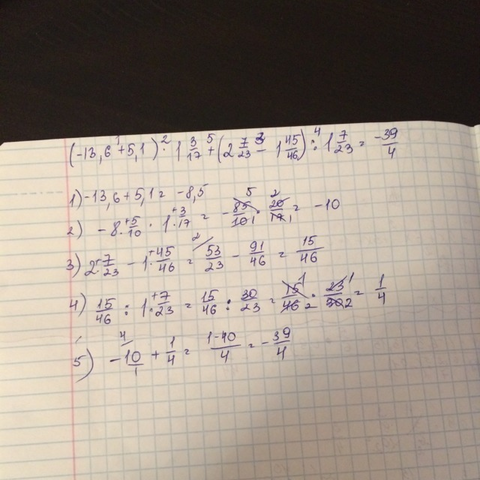 (-13,6 + 5,1) · 1 3/17 + (2 7/23 - 1 45/46) : 1 7/23 = -39/4
1) -13,6 + 5,1 = -8,5
2) -8 5/10 · 1 3/17 = -85/10 · 20/17 = -10
3) 2 7/23 - 1 45/46 = 53/23 - 91/46 = 15/46
4) 15/46 : 1 7/23 = 15/46 : 30/23 = 15/46 · 23/30 = 1/4
5) -10/1 + 1/4 = 1-40/4 = -39/4